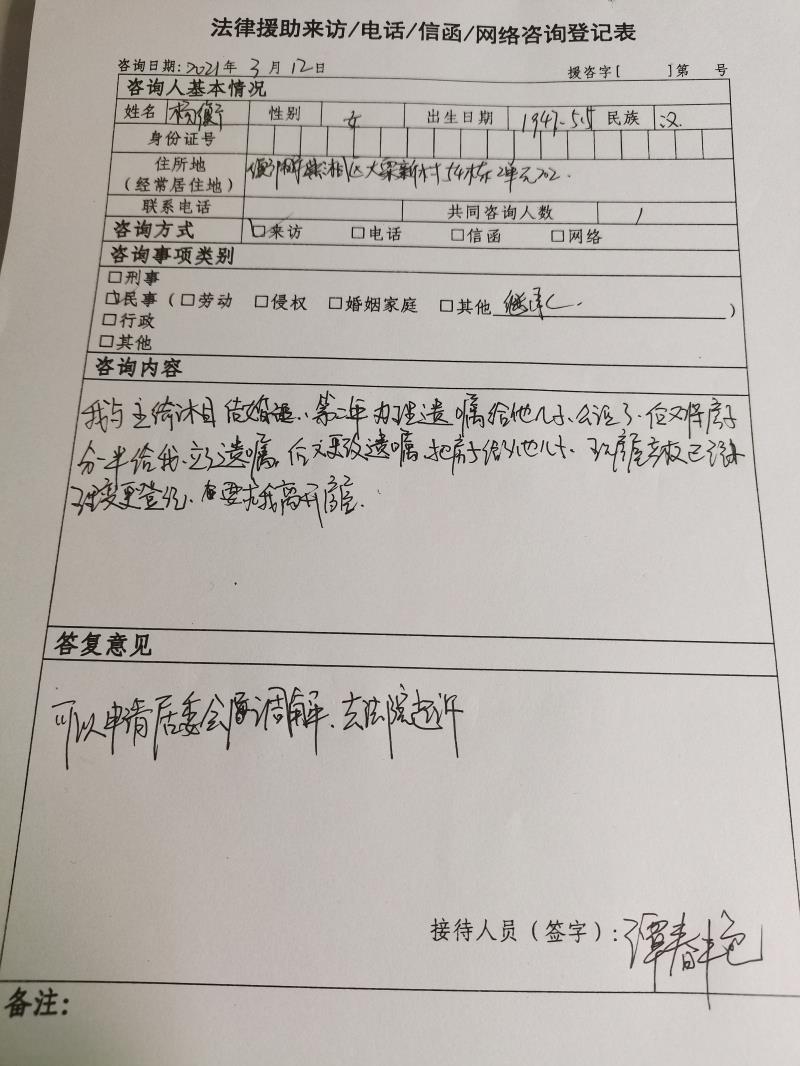 法律援助来访/电话/信函/网络咨询登记表
咨询日期:2021年3月12日 援咨字[ ]第 号
咨询人基本情况
姓名 杨衡 性别 女 出生日期 1947.5.5 民族 汉
身份证号
住所地 区大栗新村54栋2单元702.
(经常居住地)
联系电话 共同咨询人数 1
咨询方式 □来访 □电话 □信函 □网络
咨询事项类别
□刑事
□民事(□劳动 □侵权 □婚姻家庭 □其他 继承 )
□行政
□其他
咨询内容
我与 结婚 第二年办理遗嘱给他儿子,公证了,后又将房子
分一半给我,立了遗嘱,后又更改遗嘱,把房子给他儿子. 房屋产权已
理变更登记, 要求我离开房屋.
答复意见
可以申请居委会 调解、去法院起诉
接待人员(签字): 谭春艳
备注: